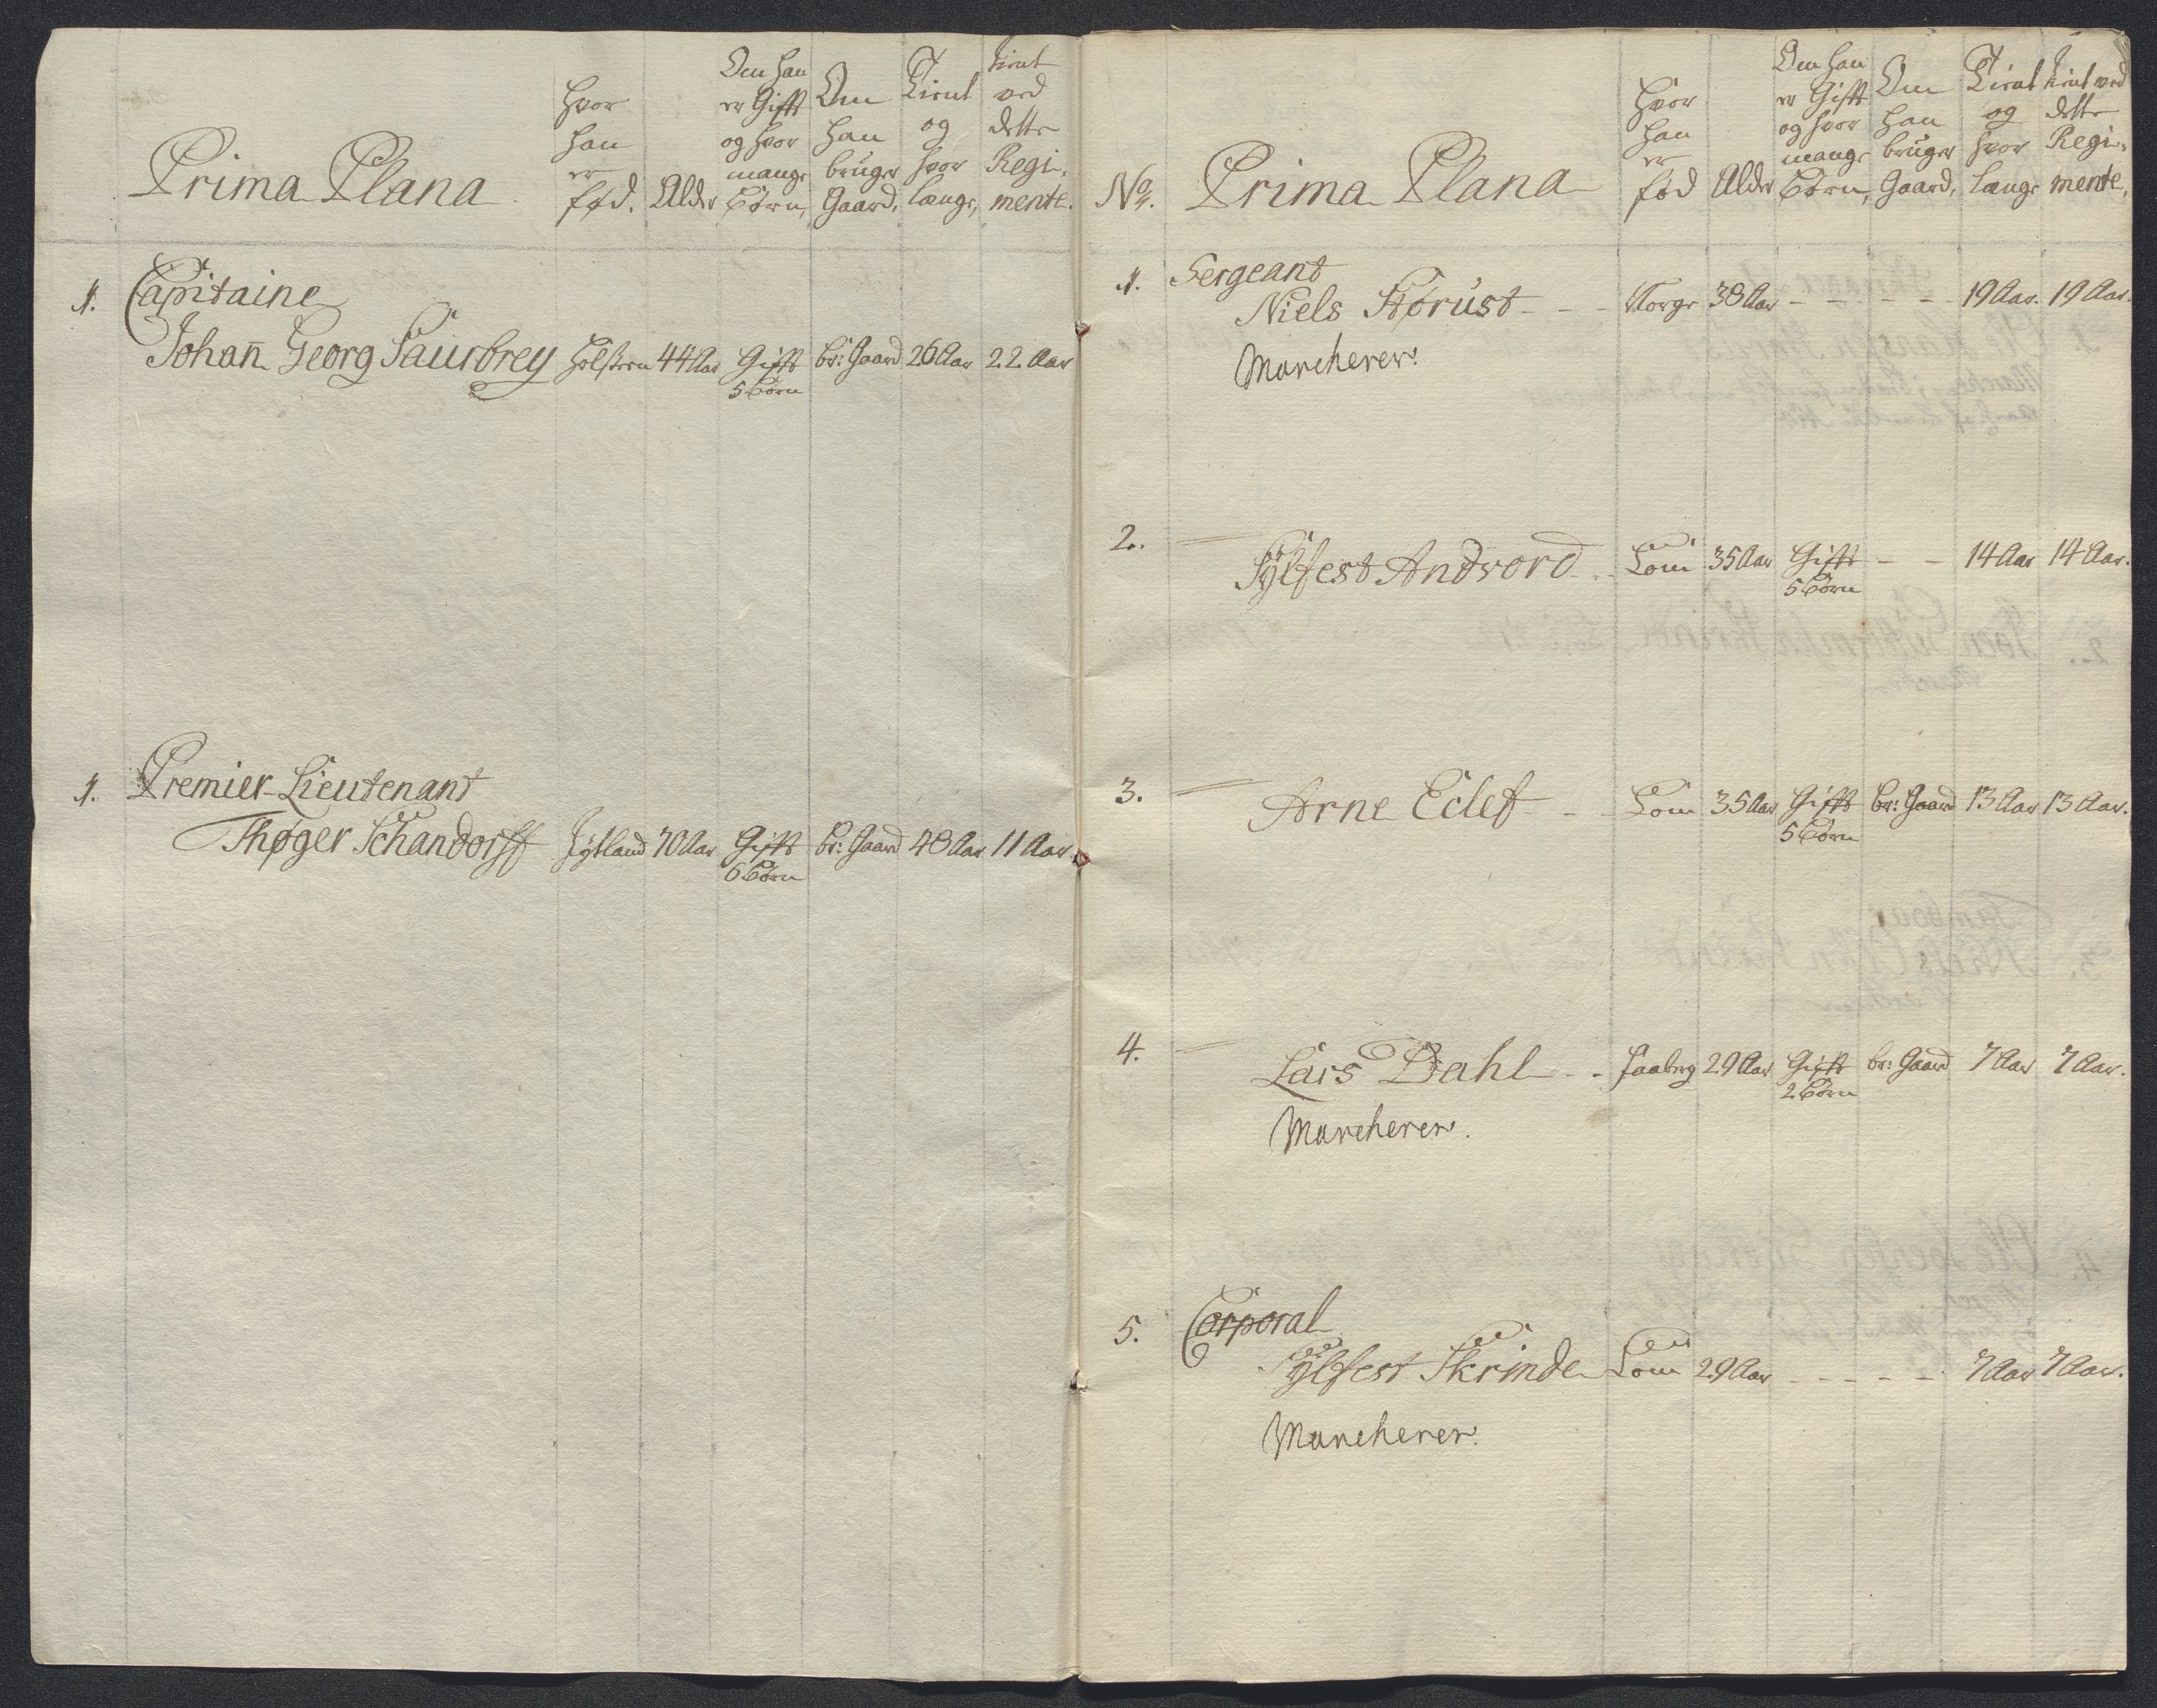 Prima Plana
Hvor han er fød.
Alder
Om han er Gift og hvor mange Børn,
Om han bruger Gaard,
Tient og hvor længe,
tient ved dette Regimente.
1. Capitaine
Johan̅ Georg Saurbrey Holsteen 44 Aar Gift br: Gaard 26 Aar 22 Aar
5 Børn
1. Premier-Lieutenant
Thøger Schandorff Jytland 70 Aar Gift br: Gaard 48 Aar 11 Aar
6 Børn
No.
Prima Plana
Hvor han er fød
Alder
Om han er Gift og hvor mange Børn,
Om han bruger Gaard,
Tient og hvor længe
tient ved dette Regimente.
1. Sergeant
Niels Størust - - - Norge 38 Aar - - - - - 19 Aar. 19 Aar.
Marcherer.
2. Sÿlfest Andvord - - Lom 35 Aar Gift - - 14 Aar 14 Aar.
5 Børn
3. Arne Eclef - - Lom 35 Aar Gift br: Gaard 13 Aar 13 Aar.
5 Børn
4. Lars Dahl - - Faaberg 29 Aar Gift br: Gaard 7 Aar 7 Aar.
2 Børn
Marcherer.
5. Corporal
Sÿlfest Skrinde Lom 29 Aar - - - - - 7 Aar 7 Aar.
Marcherer.